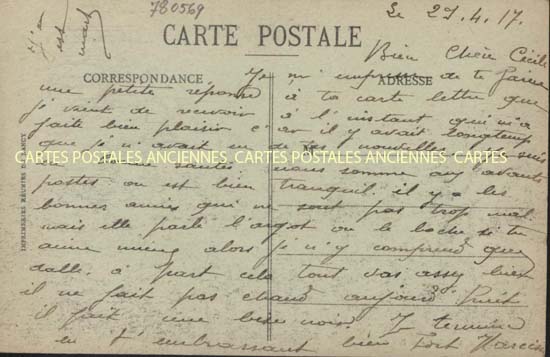 780569
Le 29.4.17.
CARTE POSTALE
Bien Chère Cécile
CORRESPONDANCE
ADRESSE
Je m'empresse de te faire
une petite réponse à ta carte lettre que
je vient de recevoir à l'instant qui m'a
faite bien plaisir car il y avait longtemps
que je n'avait eu de tes nouvelles je suis
CARTES POSTALES ANCIENNES CARTES POSTALES ANCIENNES CARTES POSTALES ANCIENNES
santée nous somme aux avants
postes on est bien tranquil. il y a les
bonnes amies qui ne sont pas trop mal.
mais elle parle l'argot ou le boche si tu
aime mieux alors je n'y comprend que
dalle. à part cela tout vas assez bien
il ne fait pas chaud aujourd'huit
il fait une bise noir. Je termine
en t'embrassant bien fort Narcisse
IMPRIMERIES RÉUNIES DE NANCY